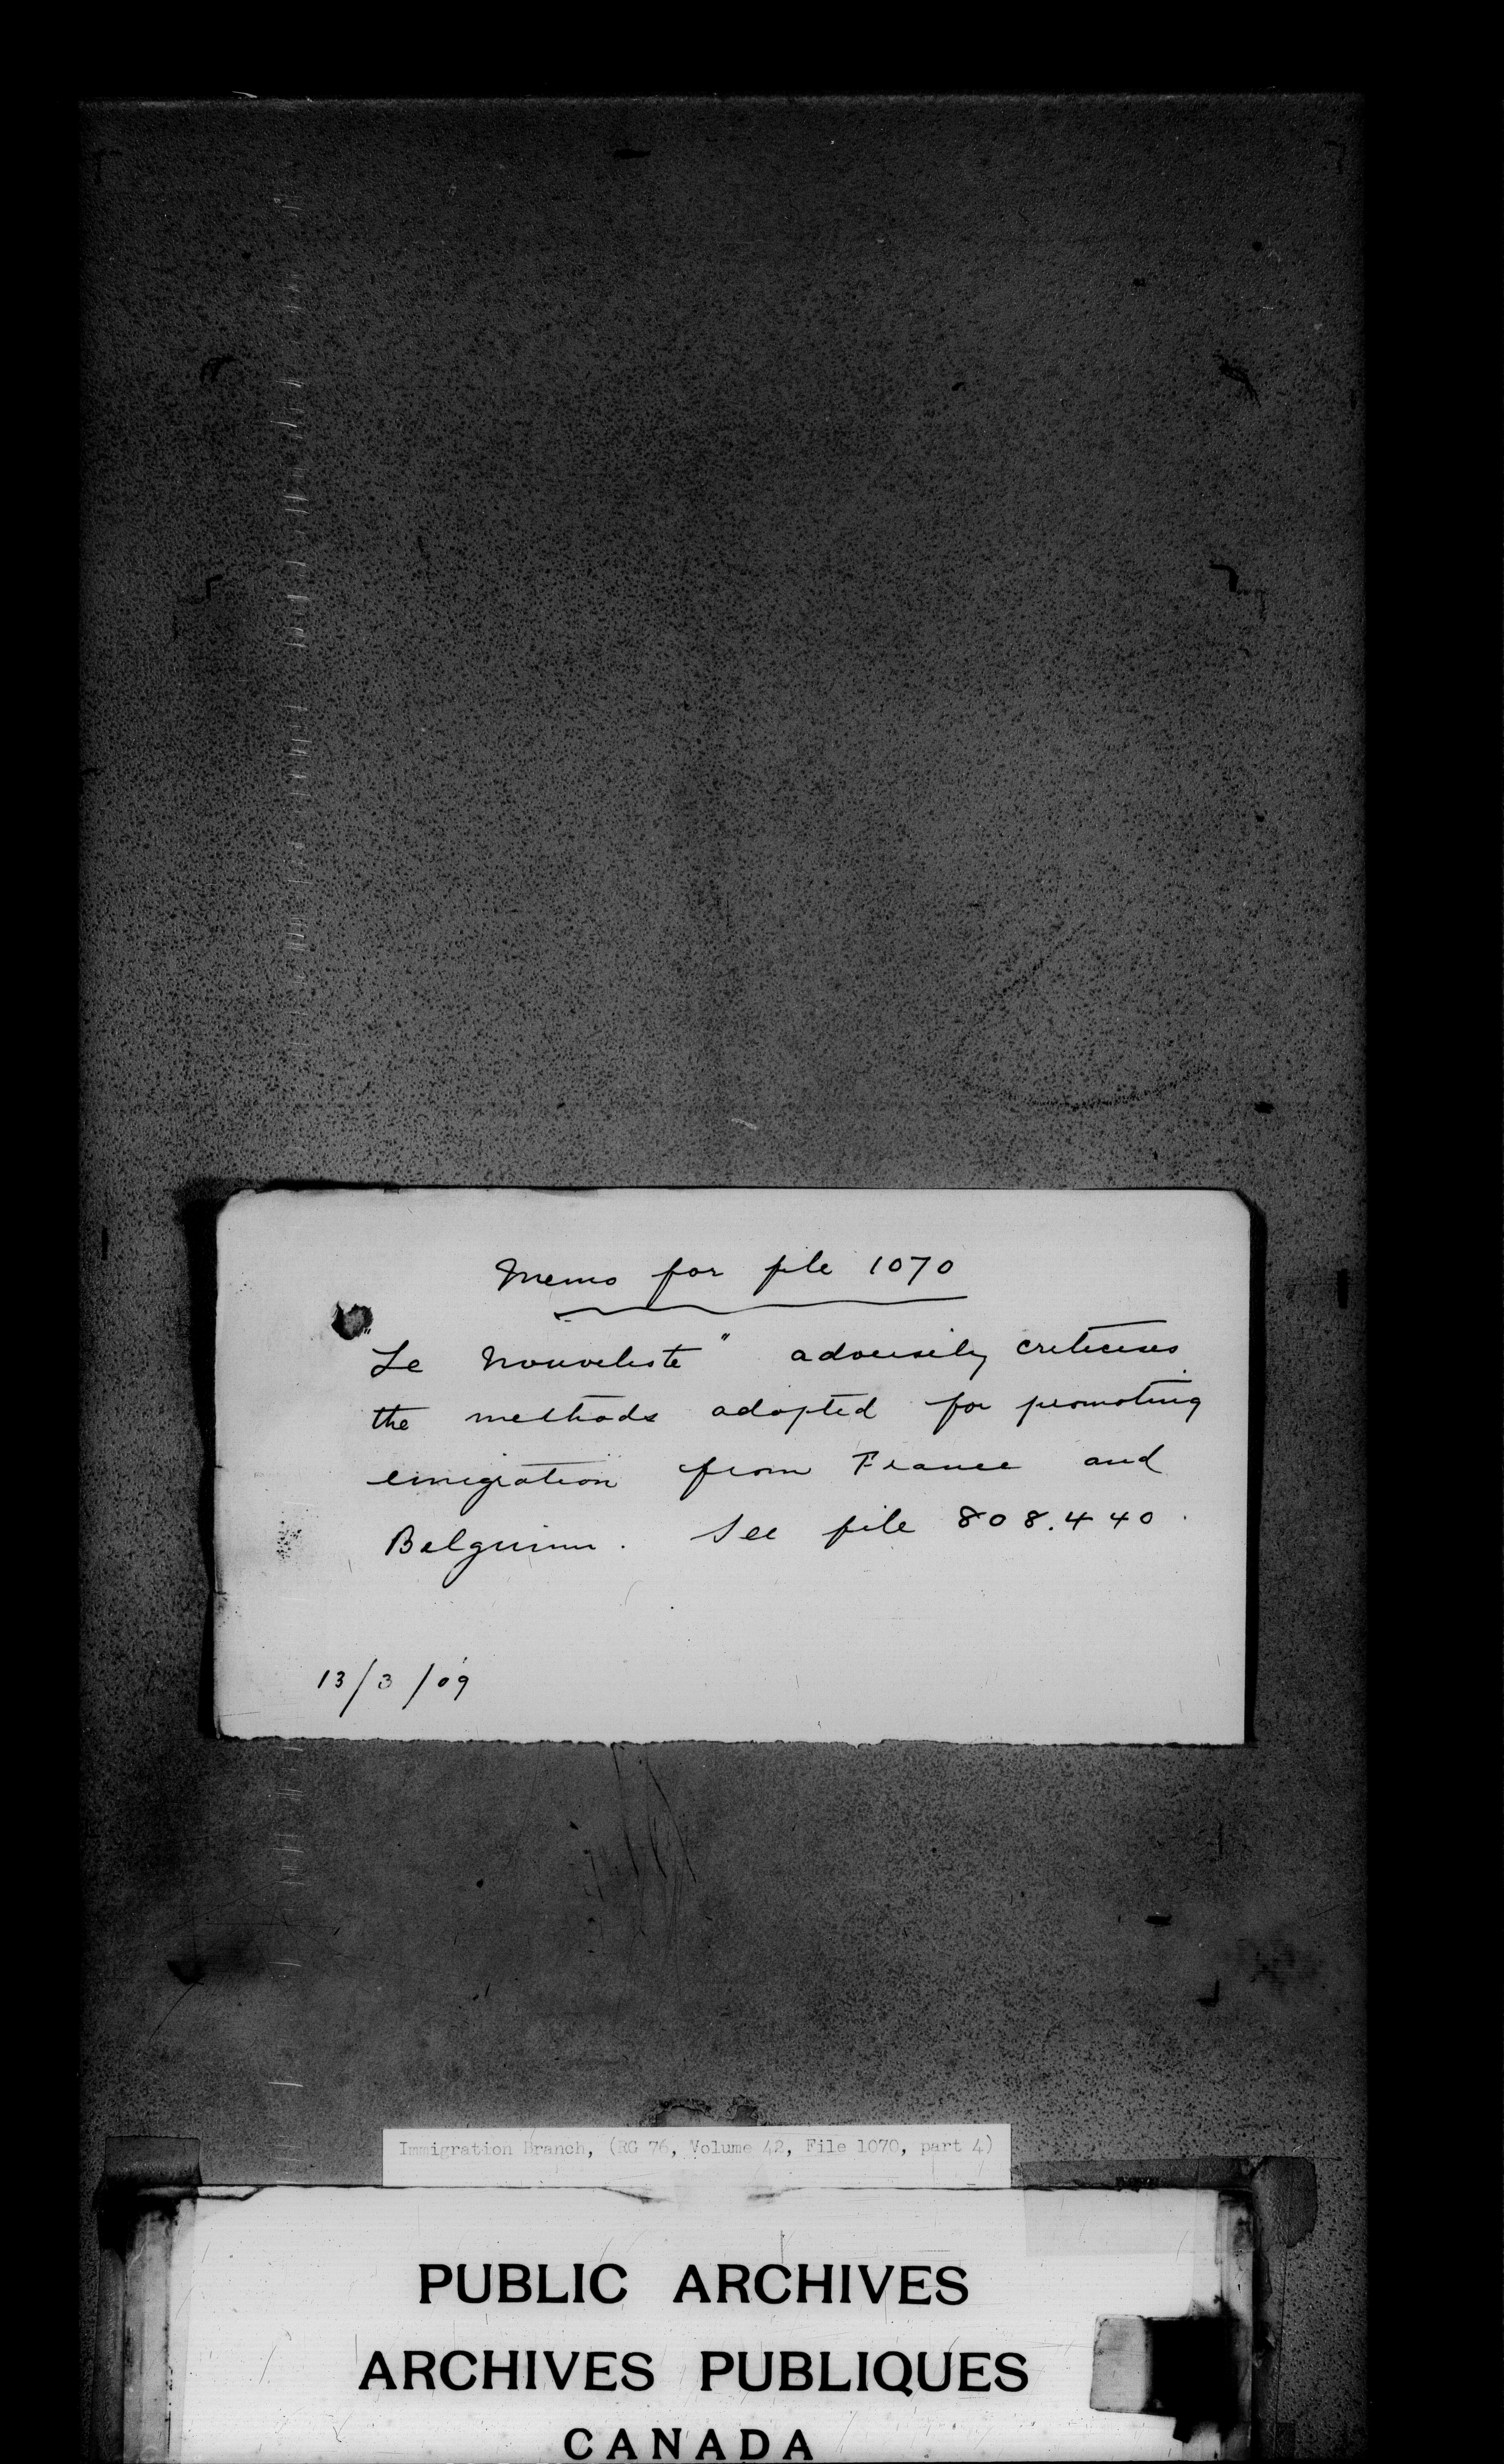 Memo for file 1070
"Le Nouveliste" adversely criticises
the methods adopted for promoting
emigration from France and
Belguium. See file 808.440.
13/3/09
Immigration Branch, (RG 76, Volume 42, File 1070, part 4)
PUBLIC ARCHIVES
ARCHIVES PUBLIQUES
CANADA